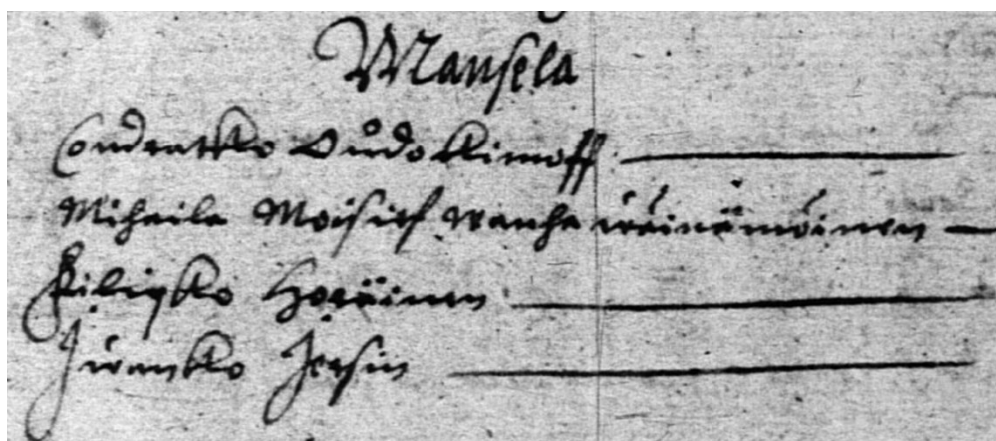 Mansela
Condratko Oudokimoff
Mihaila Moisief wanha wäinämöinen
Filipko Horäinen
Iwanko Jersin